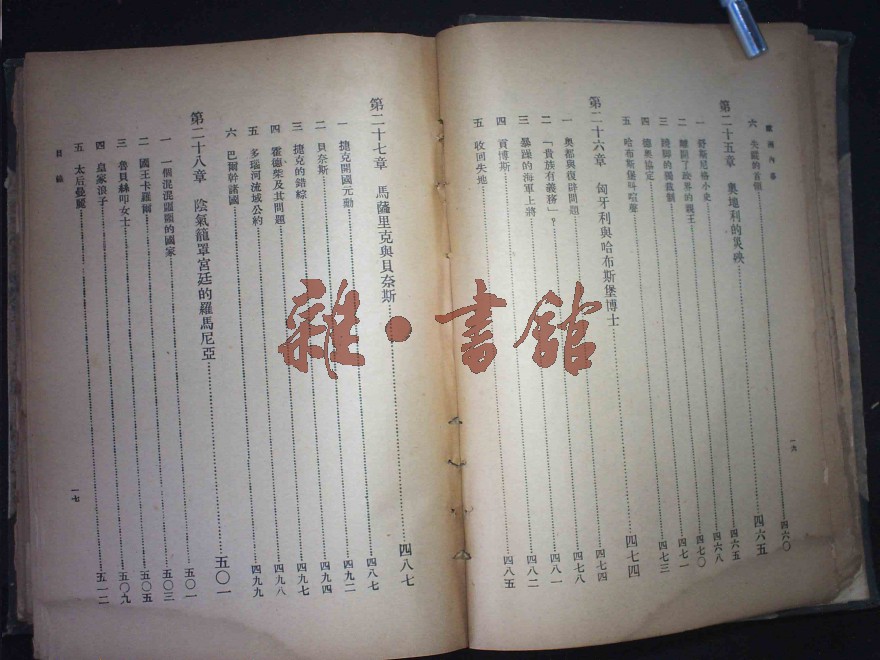 歐洲內幕
六 失蹤的首領 四六〇
第二十五章 奧地利的災殃 四六五
一 舒斯尼格小史 四六五
二 離開了政界的親王 四六八
三 踐腳的獨裁制 四七〇
四 德奧協定 四七一
五 哈布斯堡呌喧聲 四七三
第二十六章 匈牙利與哈布斯堡博士 四七四
一 奧都與復辟問題 四七四
二 「貴族有義務」? 四七八
三 暴躁的海軍上將 四八一
四 貢博斯 四八二
五 收回失地 四八五
一六
第二十七章 馬薩里克與貝奈斯 四八七
一 捷克開國元勳 四八七
二 貝奈斯 四九二
三 捷克的錯綜 四九四
四 霍德柴及其問題 四九七
五 多瑙河流域公約 四九八
六 巴爾幹諸國 四九九
第二十八章 陰氣籠罩宮廷的羅馬尼亞 五〇一
一 一個混混噩噩的國家 五〇一
二 國王卡羅爾 五〇三
三 魯貝絲叩女士 五〇五
四 皇家浪子 五〇九
五 太后曼麗 五一二
目錄
一七
雜·書館